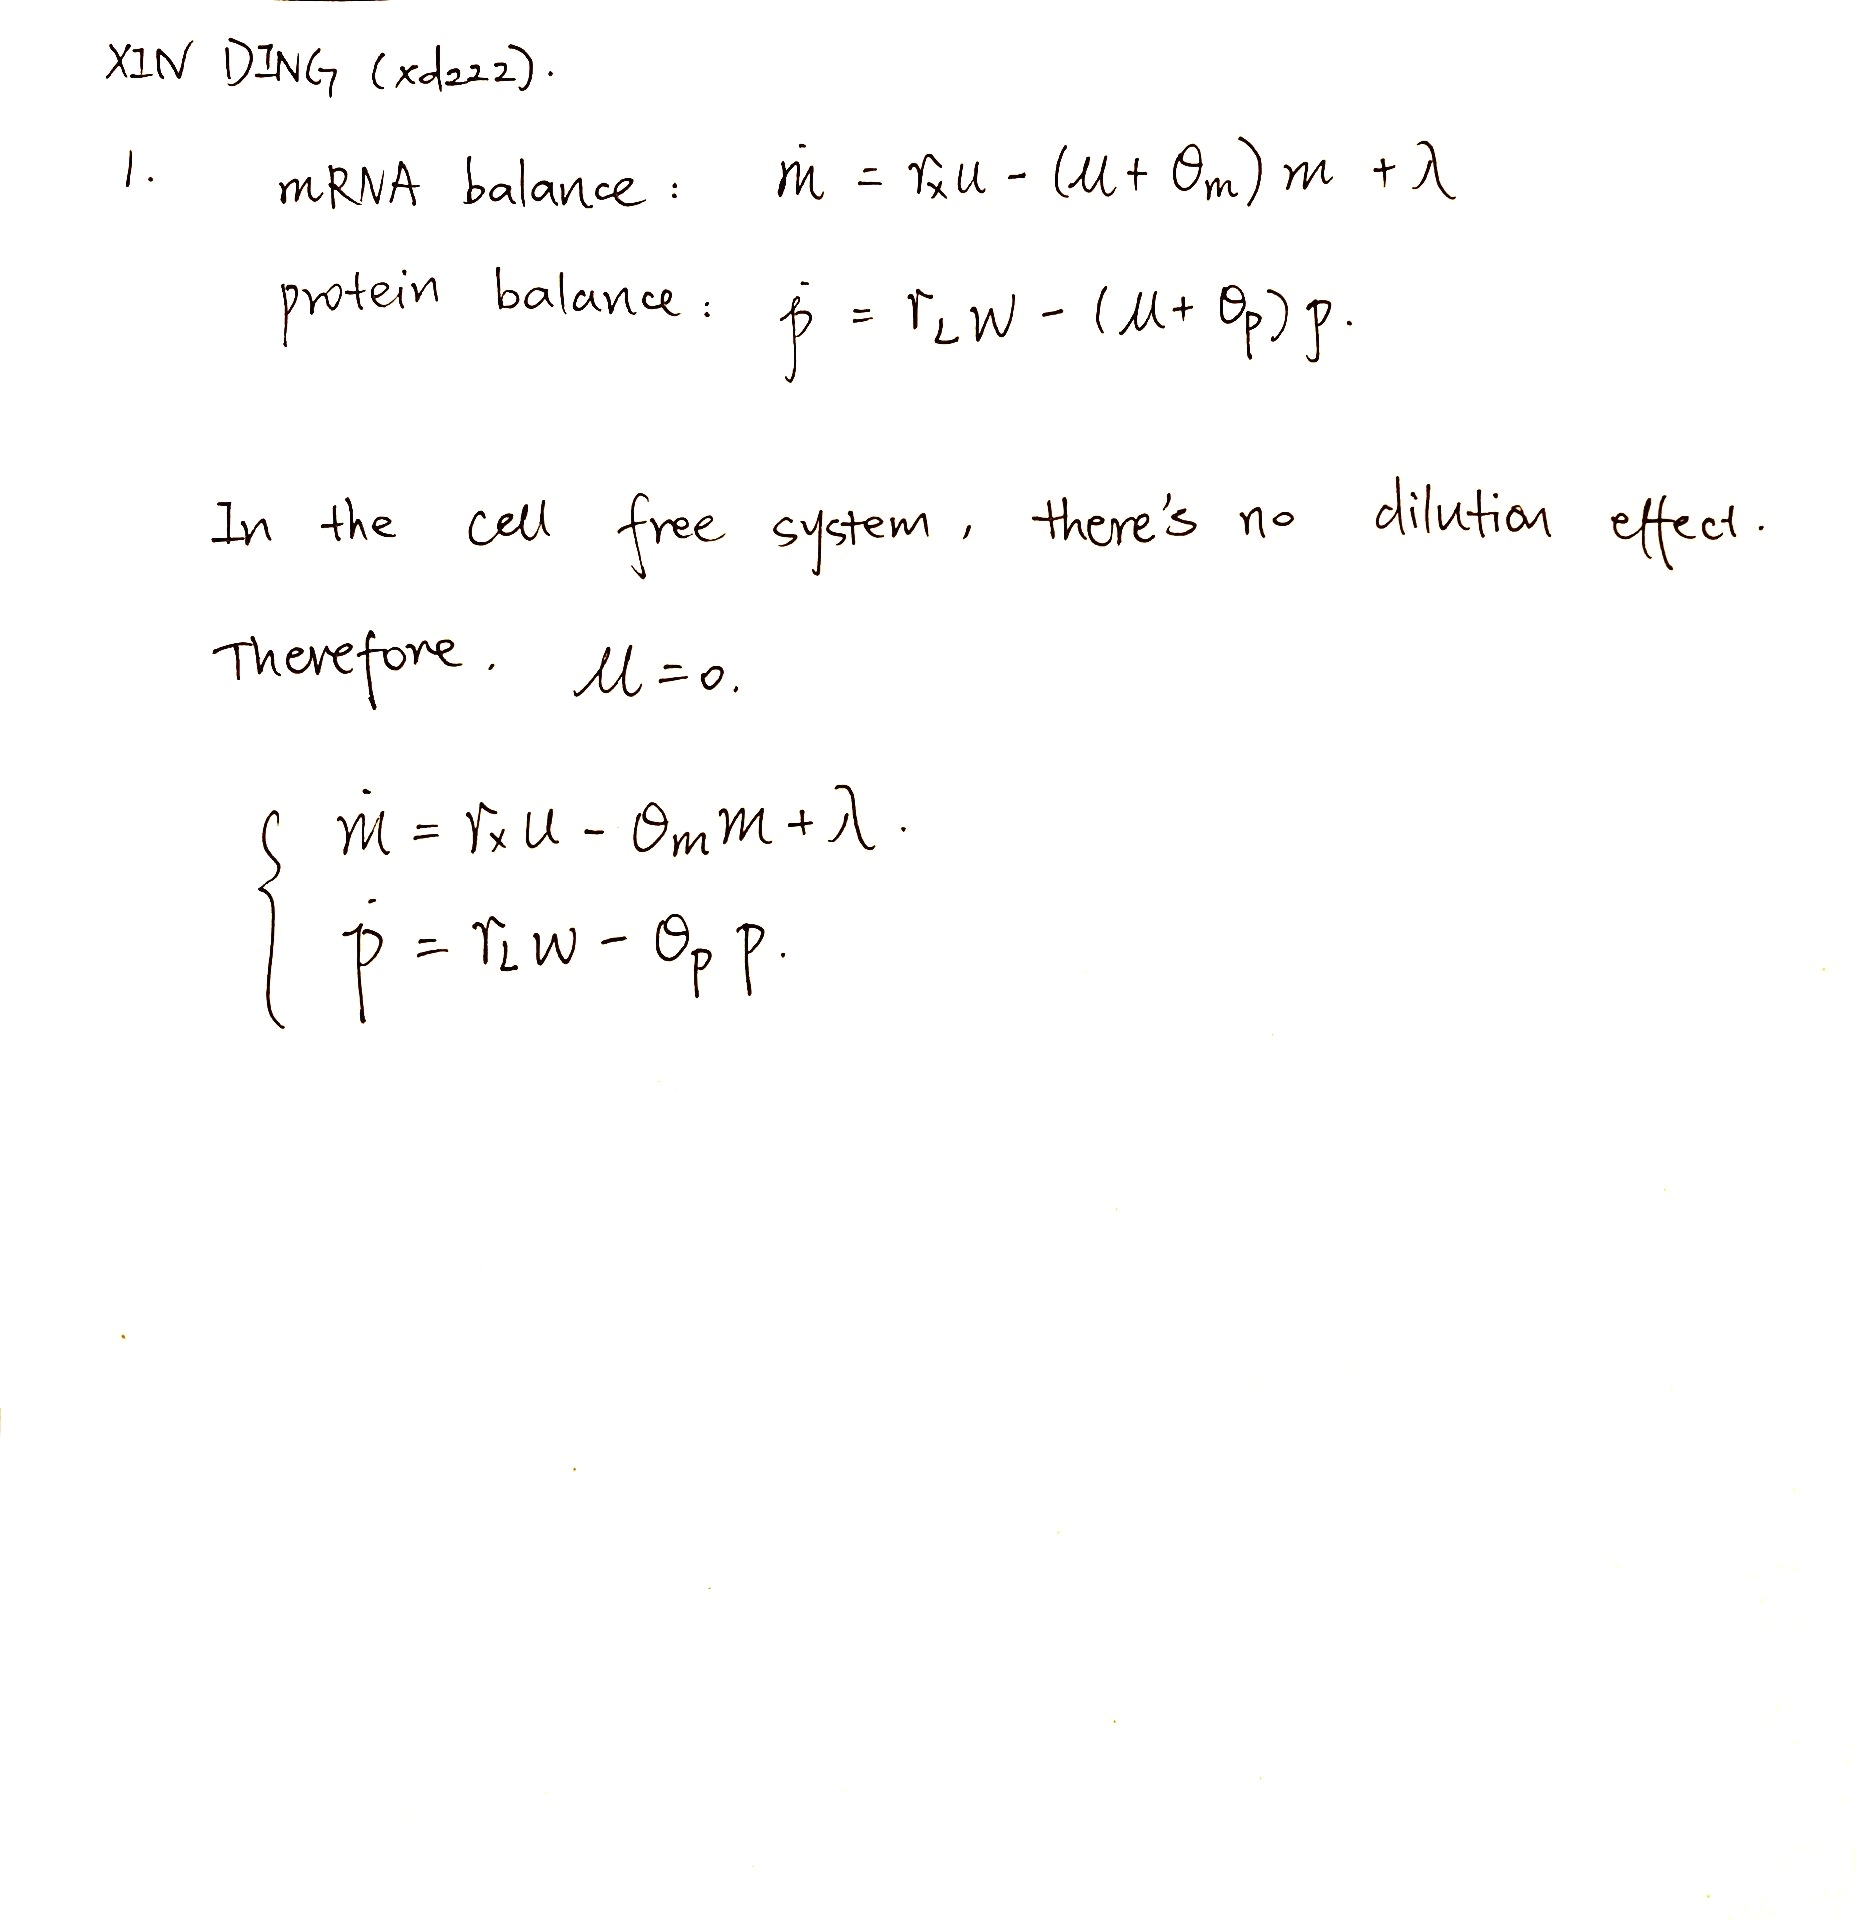 XIN DING (xd222).
1. mRNA balance : ṁ = rₓu - (μ + θₘ) m + λ
protein balance : ṗ = r_L w - (μ + θₚ) p.
In the cell free system, there's no dilution effect.
Therefore. μ = 0.
ṁ = rₓ u - θₘ m + λ.
ṗ = r_L w - θₚ p.